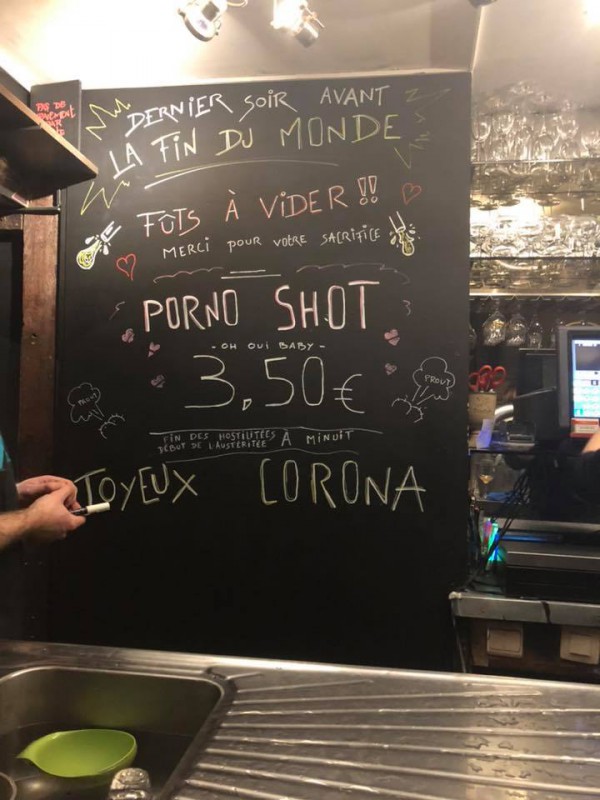 PAS DE
PAIEMENT
PAR
DERNIER SOIR AVANT
LA FIN DU MONDE
FÛTS À VIDER !!
MERCI POUR VOTRE SACRIFICE
PORNO SHOT
- OH OUI BABY -
3,50€
PROUT
PROUT
FIN DES HOSTILITÉES À MINUIT
DÉBUT DE L'AUSTÉRITÉE
JOYEUX CORONA